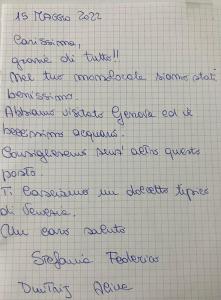 15 MAGGIO 2022
Carissima,
grazie di tutto!!
Nel tuo monolocale siamo stati
benissimo.
Abbiamo visitato Genova ed il
bellissimo acquario.
Consiglieremo senz'altro questo
posto.
Ti lasciamo un dolcetto tipico
di Venezia.
Un caro saluto
Stefania Federico
Dmitrij Alice